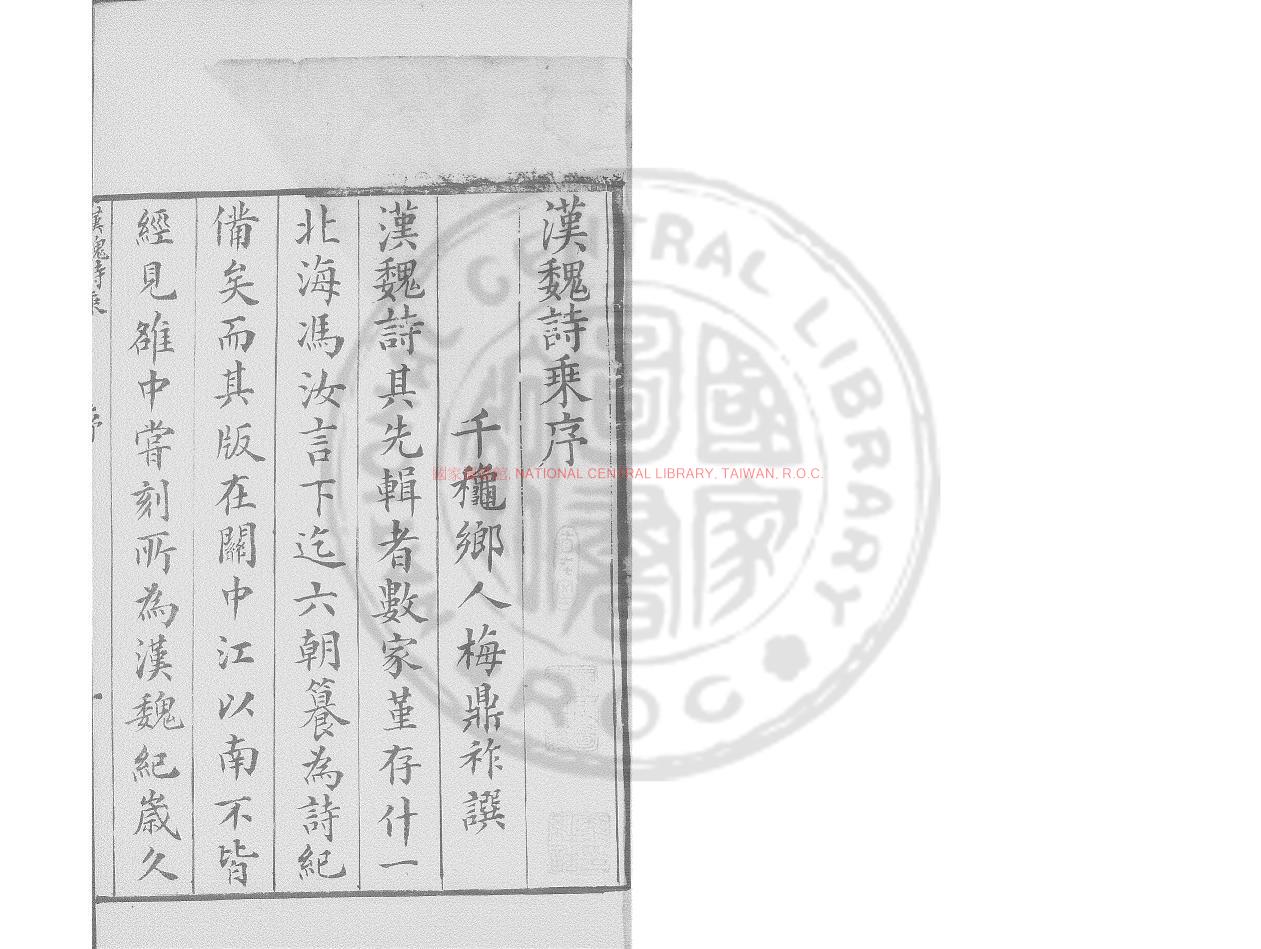 漢魏詩乗序
千龝鄉人梅鼎祚譔
漢魏詩其先輯者數家堇存什一
北海馮汝言下迄六朝篹為詩紀
備矣而其版在關中江以南不皆
經見雒中甞刻所為漢魏紀歲久
漢魏詩乗
序
一
國家圖書館, NATIONAL CENTRAL LIBRARY, TAIWAN, R.O.C.
NATIONAL CENTRAL LIBRARY
R.O.C